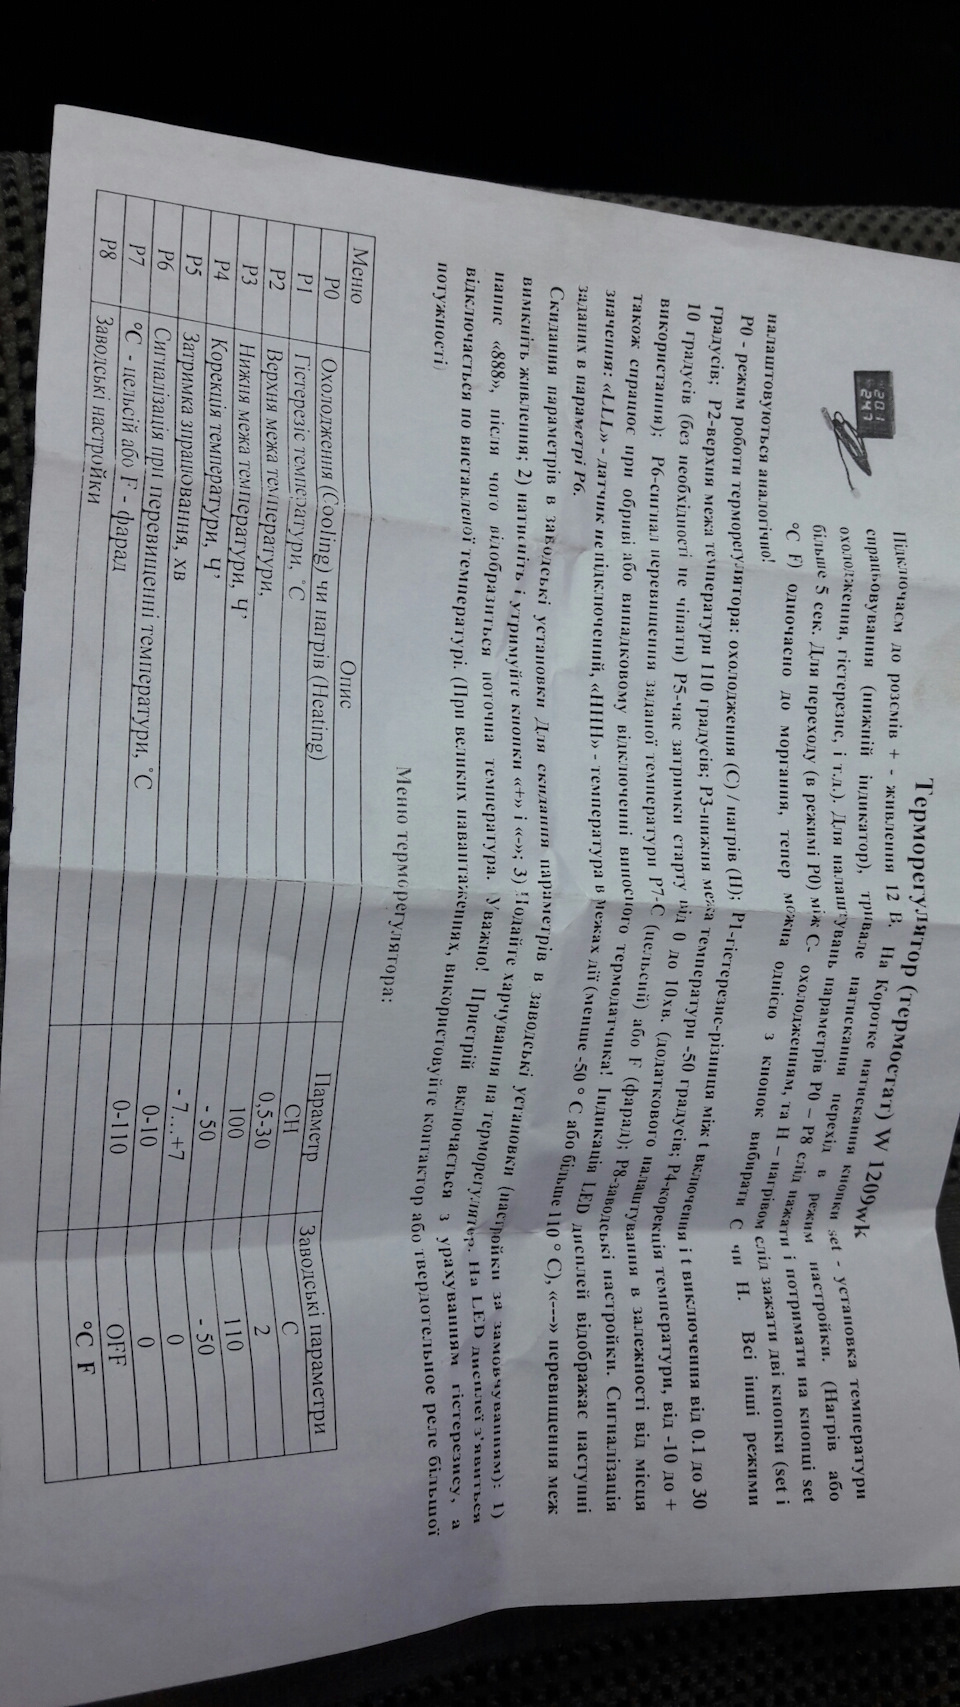 Терморегулятор (термостат) W 1209wk
201
247
Підключаєм до роз'ємів + - живлення 12 В. На Коротке натискання кнопки set - установка температури
спрацьовування (нижній індикатор), тривале натискання перехід в режим настройки. (Нагрів або
охолодження, гістерезис, і т.д.). Для налаштувань параметрів P0 – P8 слід нажати і потримати на кнопці set
більше 5 сек. Для переходу (в режимі P0) між С- охолодженням, та Н – нагрівом слід зажати дві кнопки (set і
°C F) одночасно до моргання, тепер можна однією з кнопок вибирати С чи Н. Всі інші режими
налаштовуються аналогічно!
P0 - режим роботи терморегулятора: охолодження (С) / нагрів (Н); P1-гістерезис-різниця між t включення і t виключення від 0.1 до 30
градусів; P2-верхня межа температури 110 градусів; P3-нижня межа температури -50 градусів; P4-корекція температури, від -10 до +
10 градусів (без необхідності не чіпати) P5-час затримки старту від 0 до 10хв. (додаткового налаштування в залежності від місця
використання); P6-сигнал перевищення заданої температури P7-С (цельсій) або F (фарад); P8-заводські настройки. Сигналізація
також спрацює при обриві або випадковому відключенні виносного термодатчика! Індикація LED дисплей відображає наступні
значення: «LLL» - датчик не підключений, «HHH» - температура в межах дії (менше -50 ° C або більше 110 ° C), «---» перевищення меж
заданих в параметрі P6.
Скидання параметрів в заводські установки Для скидання параметрів в заводські установки (настройки за замовчуванням): 1)
вимкніть живлення; 2) натисніть і утримуйте кнопки «+» і «-»; 3) Подайте харчування на терморегулятер. На LED дисплеї з'явиться
напис «888», після чого відобразиться поточна температура. Уважно! Пристрій включається з урахуванням гістерезису, а
відключається по виставленої температурі. (При великих навантаженнях, використовуйте контактор або твердотельное реле більшої
потужності)
Меню терморегулятора:
Меню Опис Параметр Заводські параметри
P0 Охолодження (Cooling) чи нагрів (Heating) CH C
P1 Гістерезіс температури, °C 0,5-30 2
P2 Верхня межа температури. 100 110
P3 Нижня межа температури, Ч' - 50 - 50
P4 Корекція температури, Ч' - 7…+7 0
P5 Затримка зпрацювання, хв 0-10 0
P6 Сигналізація при перевищенні температури, °C 0-110 OFF
P7 °C - цельсій або F - фарад °C F
P8 Заводські настройки